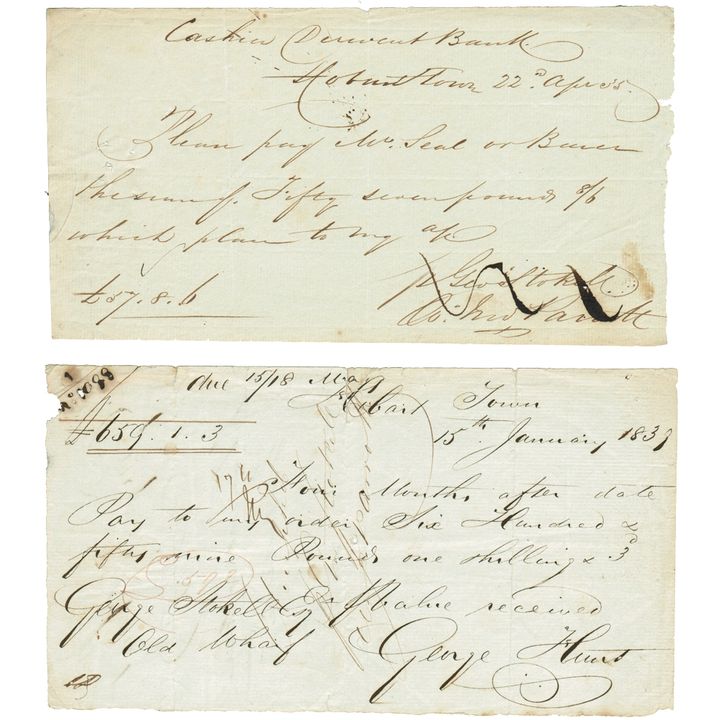 Cashier Derwent Bank
Hobart Town 22d Apr 35
Please pay Mr. Seal or Bearer
the sum of Fifty seven pounds 8/6
which place to my a/c
£57.8.6
Geo Stokell
due 15/18 May
Hobart Town
£659.1.3
15th January 1839
Four Months after date
Pay to my order Six Hundred &
fifty nine Pounds one shilling & 3d
George Stokell Esq Value received
Old Wharf George Hunt